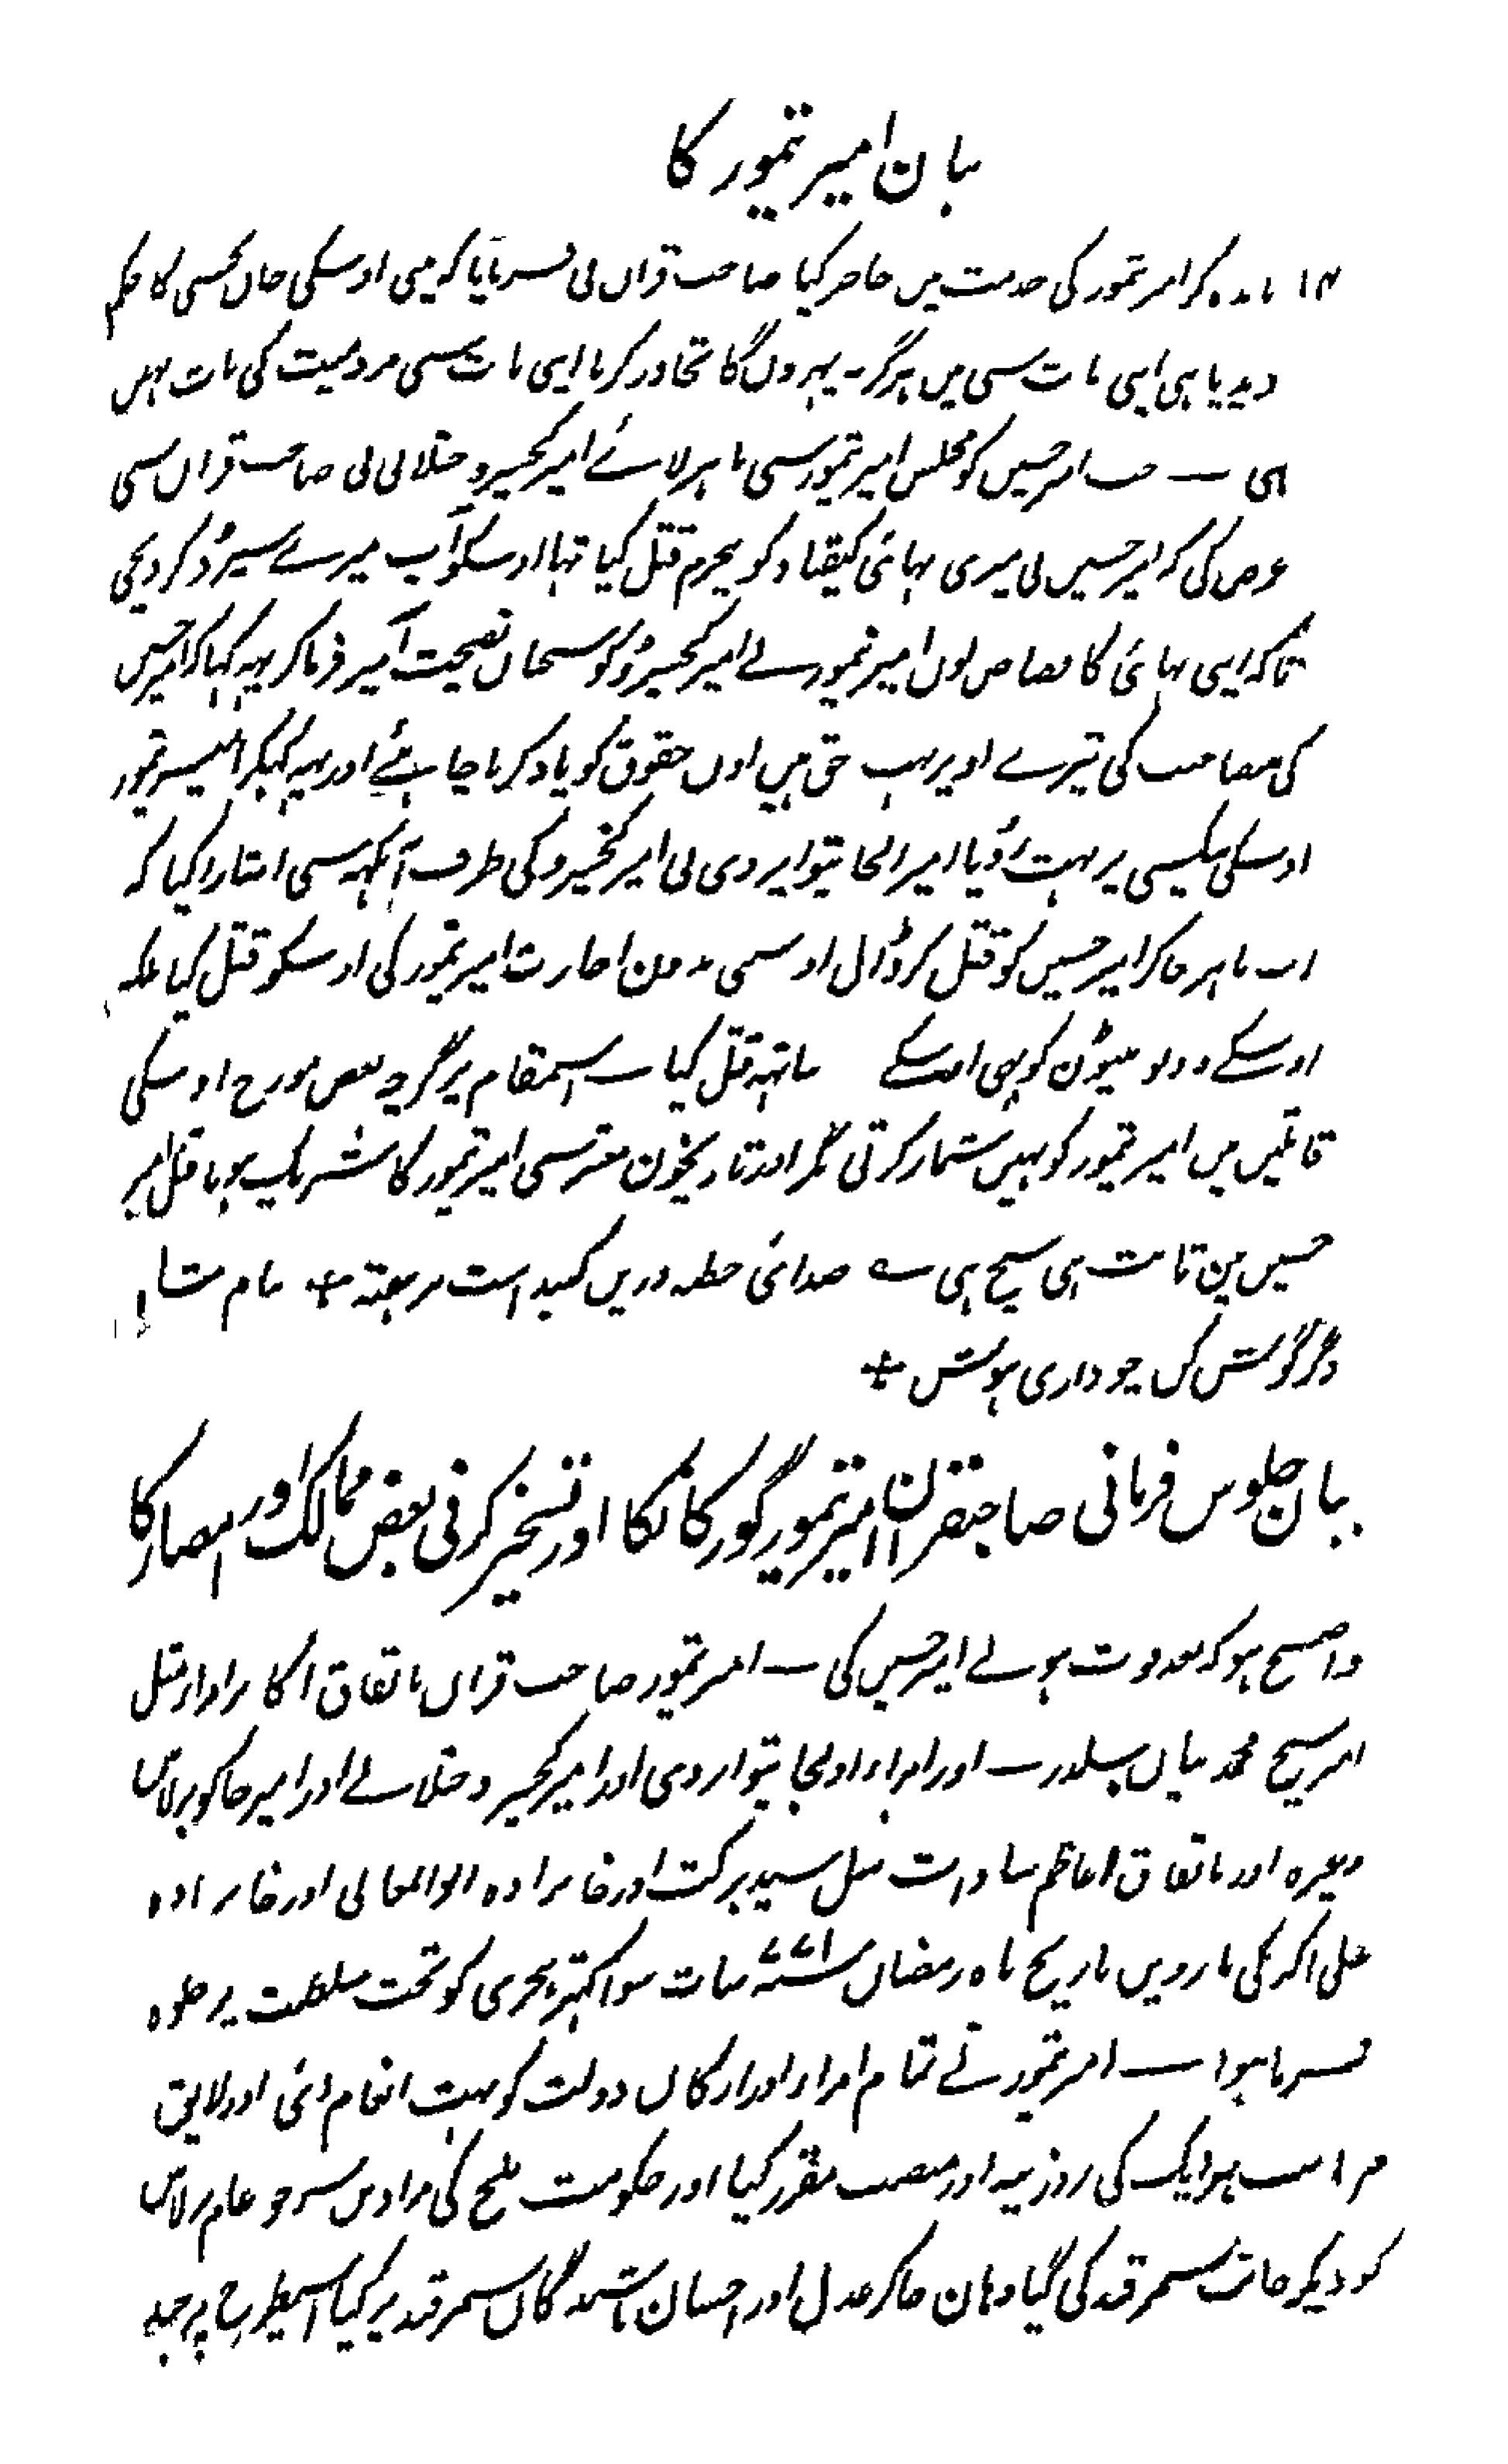 بیان امیر تیمور کا
۱۴ باندہ کر امیر تیمور کی خدمت میں حاضر کیا صاحب قراں نی فرمایا کہ میں اوسکی جاں بخشی کا حکم
دیدیا ہی اپنی بات سی میں ہرگز نہ پہروں گا تجاوز کرنا اپنی بات سی مردمیت کی بات نہیں
ہی — جب امیر حسین کو مجلس امیر تیمور سی باہر لائے امیر کیخسرو ختلانی نی صاحب قراں سی
عرض کی کہ امیر حسین نی میری بہائی کیقباد کو بیجرم قتل کیا تہا اوسکو آپ میرے سپرد کر دیجی
تاکہ اپنی بہائی کا قصاص لوں امیر تیمور نے امیر کیخسرو کو سخناں نصیحت آمیز فرما کر یہہ کہا کہ امیر حسین
کی مصاحبت کی تیرے اوپر بہت حق ہیں اوں حقوق کو یاد کرنا چاہئے اور یہہ کہکر امیر تیمور
اوسکی بیکسی پر بہت رویا امیر الجایتو ایردی نی امیر کیخسرو کی طرف آنکہہ سی اشارا کیا کہ
اب باہر جا کر امیر حسین کو قتل کر ڈال اوسی بدون اجازت امیر تیمور کی اوسکو قتل کیا بلکہ
اوسکے دونو بیٹوں کو بہی اوسکے ساتہہ قتل کیا — اسمقام پر گرچہ بعض مورخ اوسکی
قاتلین میں امیر تیمور کو نہیں شمار کرتی مگر اور تاریخون معتبر سی امیر تیمور کا شریک ہونا قتل امیر
حسین مین ثابت ہی سچ ہی — صدائی خطبہ دریں گنبد است سر بہتہ + بنام شاہ
دگر گوش کن چو داری ہوش +
بیان جلوس فرمانی صاحبقران امیر تیمور گورکانکا اور تسخیر کرنی بعض ممالک اور امصار کا
واضح ہو کہ بعد فوت ہونے امیر حسین کی — امیر تیمور صاحب قراں باتفاق اکابر اوار مثل
امیر شیخ محمد بیاں سلدوز — اور امراء اولجایتو اردی اور امیر کیخسرو ختلانے اور امیر جاکو برلاس
وغیرہ اور باتفاق اعاظم سادات مثل سید برکت اور خانزادہ ابو المعالی اور خانزادہ
علی اکبر کی بارویں تاریخ ماہ رمضاں سنہ ۷۷۱ سات سو اکہتر ہجری کو تخت سلطنت پر جلوہ
فرما ہوا — امیر تیمور نے تمام امراء اور ارکاں دولت کو بہت انعام دئی اور لایق
مراتب ہر ایک کی روزینہ اور منصب مقرر کیا اور حکومت بلخ کی مراد بن جوغام برلاس
کو دیکر جانب سمرقند کی گیا وہان جا کر عدل اور احسان باشندگاں سمرقند پر کیا اسیطرح پر جب